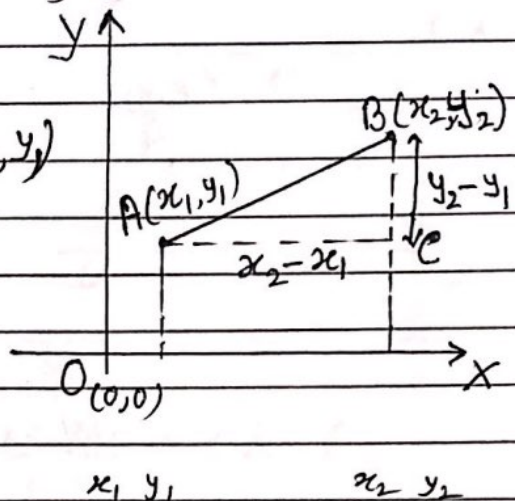 Y
B(x₂,y₂)
,y₁)
A(x₁,y₁)
y₂-y₁
C
x₂-x₁
X
O(0,0)
x₁ y₁ x₂ y₂